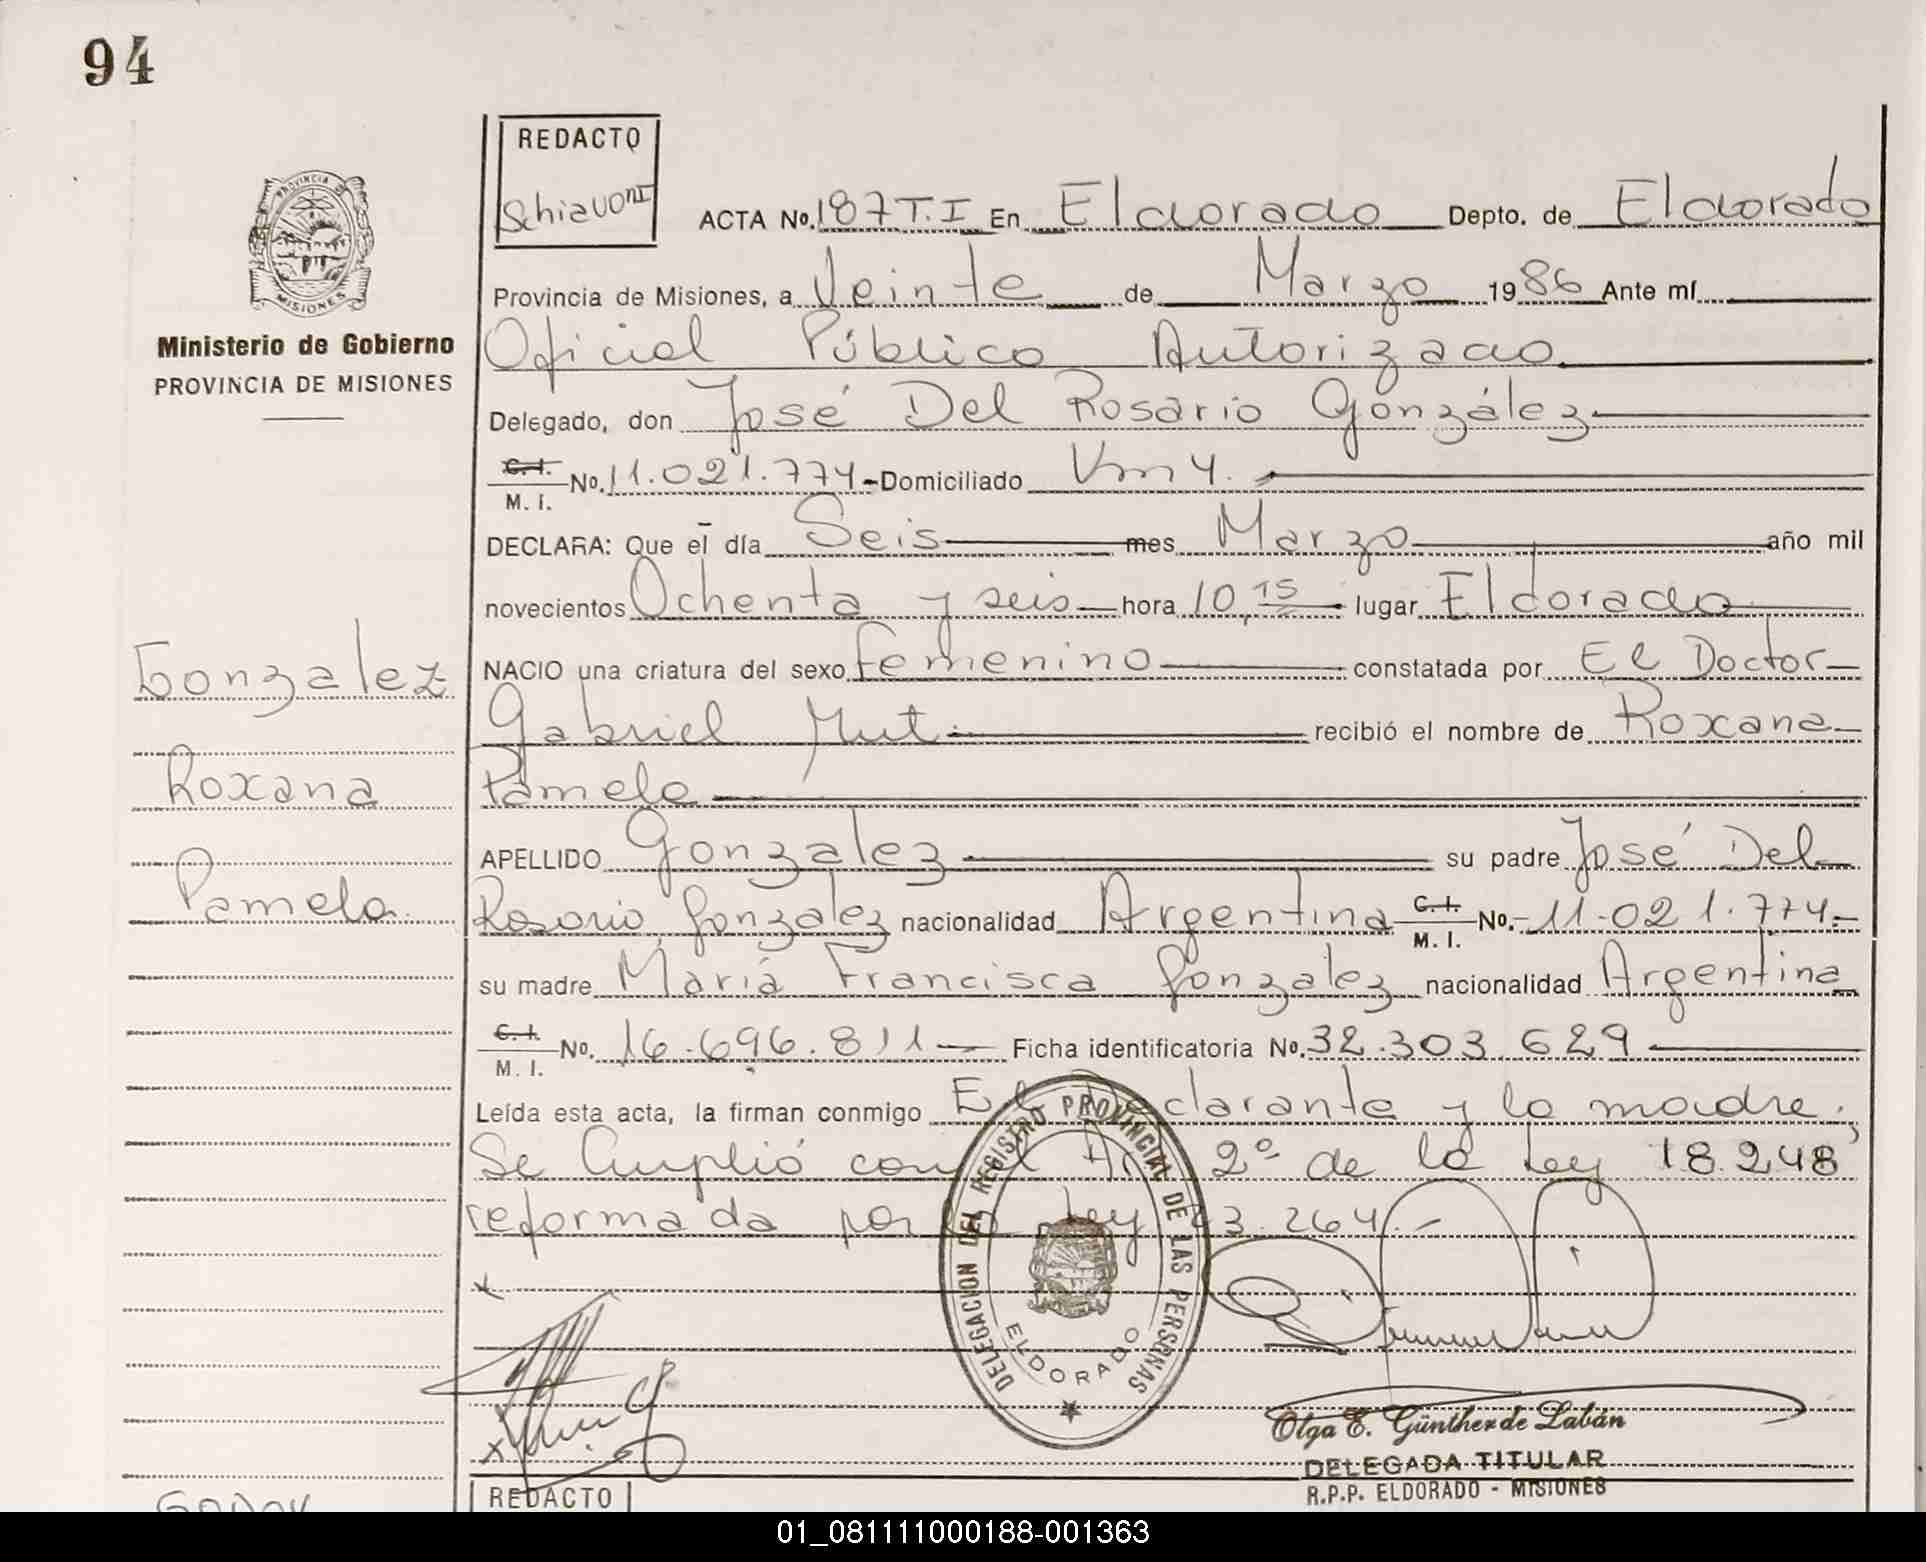 94
REDACTO
Schiavoni
ACTA No. 187 T.I En Eldorado Depto. de Eldorado
PROVINCIA DE
MISIONES
Provincia de Misiones, a Veinte de Marzo 1986 Ante mí
Ministerio de Gobierno
PROVINCIA DE MISIONES
Oficial Público Autorizado
Delegado, don José Del Rosario González
C.I. M.I. No. 11.021.774- Domiciliado Km 4.
DECLARA: Que el día Seis mes Marzo año mil
novecientos Ochenta y seis hora 10,15 lugar Eldorado
Gonzalez
NACIO una criatura del sexo Femenino constatada por El Doctor
Gabriel Mut recibió el nombre de Roxana
Roxana
Pamela
APELLIDO Gonzalez su padre José Del
Pamela
Rosario Gonzalez nacionalidad Argentina C.I. M.I. No. 11.021.774.-
su madre María Francisca Gonzalez nacionalidad Argentina
C.I. M.I. No. 16.696.811 Ficha identificatoria No. 32.303.629
Leída esta acta, la firman conmigo El Declarante y la madre,
Se Cumplió con el Art 2º de la Ley 18.248
reformada por la Ley 23.264.-
DELEGACION DEL REGISTRO PROVINCIAL DE LAS PERSONAS
ELDORADO
Olga E. Günther de Labán
DELEGADA TITULAR
R.P.P. ELDORADO - MISIONES
REDACTO
01_081111000188-001363